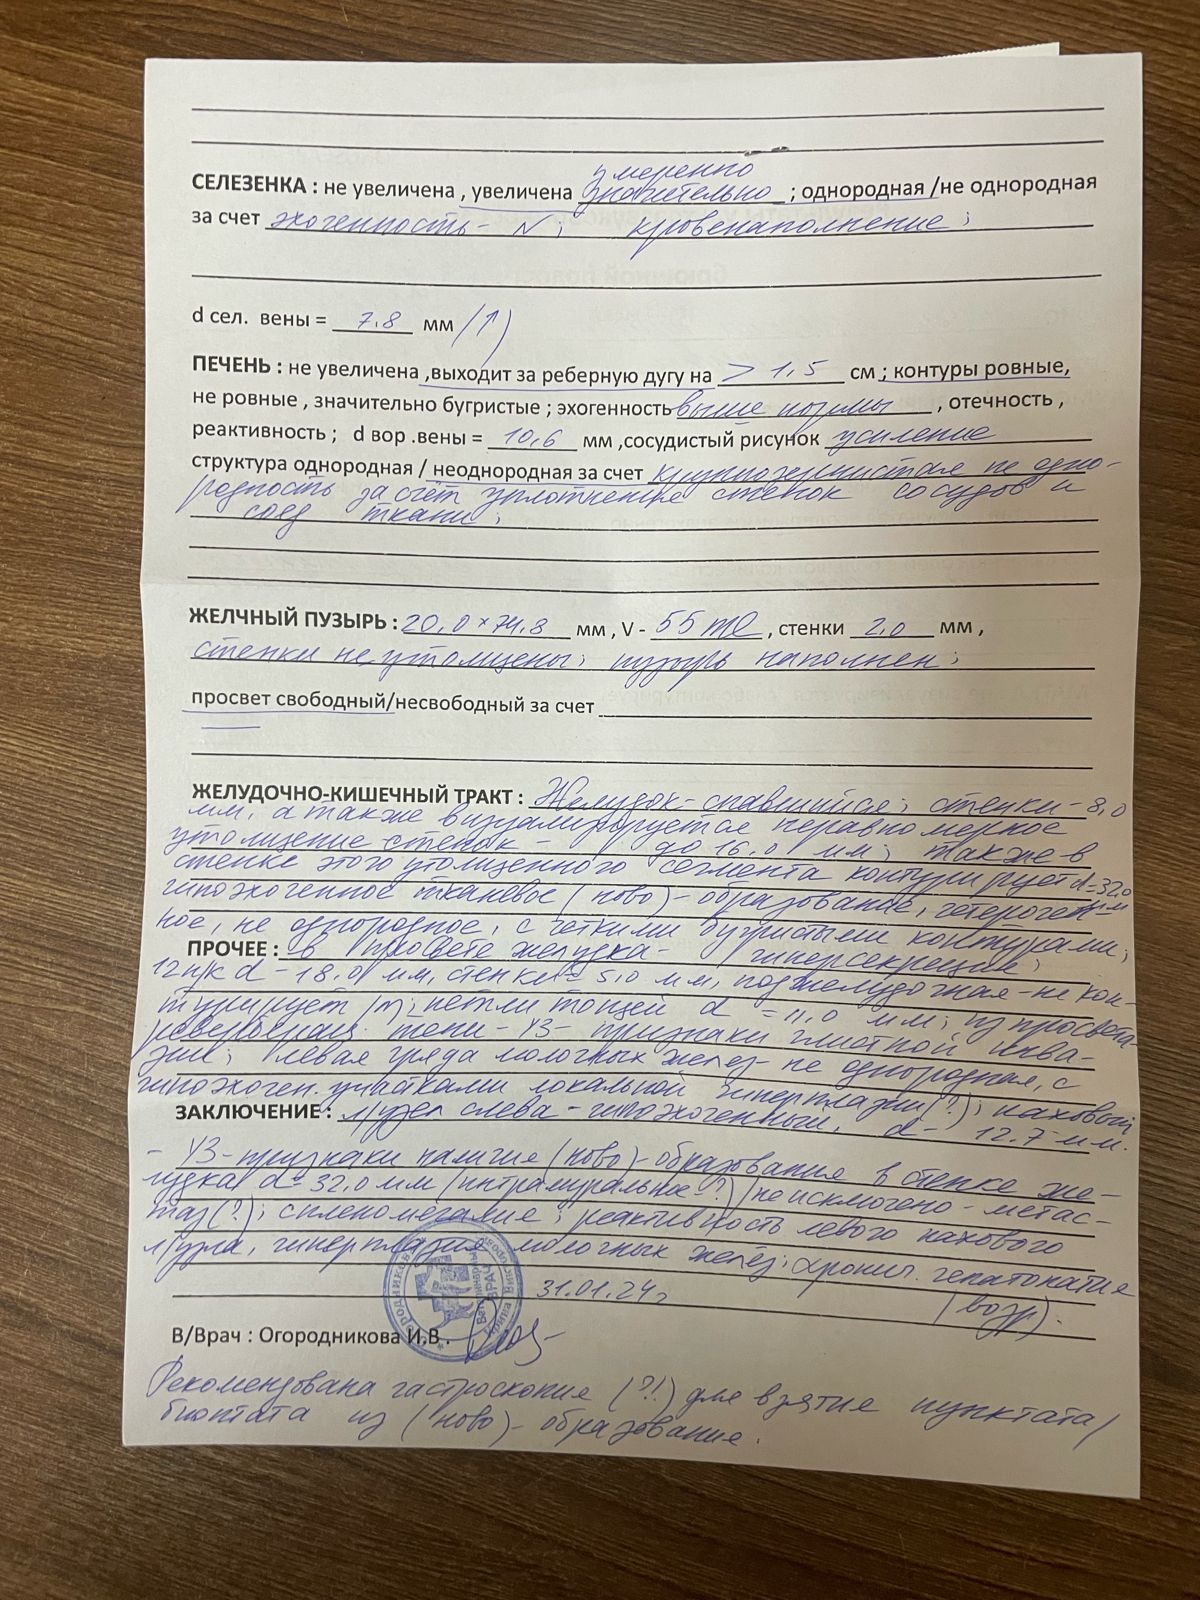 умеренно
СЕЛЕЗЕНКА : не увеличена , увеличена значительно ; однородная /не однородная
за счет эхогенность - N ; кровенаполнение ;
d сел. вены = 7,8 мм (↑)
ПЕЧЕНЬ : не увеличена ,выходит за реберную дугу на > 1,5 см ; контуры ровные,
не ровные , значительно бугристые ; эхогенность выше нормы , отечность ,
реактивность ; d вор .вены = 10,6 мм ,сосудистый рисунок усиление
структура однородная / неоднородная за счет крупнозернистая не одно-
родность за счёт уплотнения стенок сосудов и
соед ткани ;
ЖЕЛЧНЫЙ ПУЗЫРЬ : 20,0 × 74,8 мм , V - 55 ml , стенки 2,0 мм ,
стенки не утолщены ; пузырь наполнен ;
просвет свободный/несвободный за счет
ЖЕЛУДОЧНО-КИШЕЧНЫЙ ТРАКТ : Желудок - спавшийся ; стенки - 8,0
мм, а также визуализируется неравномерное
утолщение стенок - до 16,0 мм ; также в
стенке этого утолщенного сегмента контурирует d=32,0
мм
гипоэхогенное тканевое (ново) - образование, гетероген-
ное, не однородное, с четкими бугристыми контурами ;
ПРОЧЕЕ : в просвете желудка - гиперсекреция ;
12 п/к d - 18,0 мм, стенки = 5,0 мм, поджелудочная - не кон-
турирует ; петли тощей d = 11,0 мм ; из просвета -
реверберация тени - УЗ - признаки глистной инва-
зии ; левая гряда молочных желез - не однородная, с
гипоэхоген. участками локальной гиперплазии (?) ; паховый
ЗАКЛЮЧЕНИЕ : л/узел слева - гипоэхогенный, d - 12,7 мм.
- УЗ - признаки наличие (ново) - образование в стенке же-
лудка d = 32,0 мм (интрамуральное - ?) / не исключено - метас-
таз (?) ; спленомегалие ; реактивность левого пахового
л/узла, гиперплазия молочных желёз ; хронич. гепатопатие
(возр).
31.01.24г
В/Врач : Огородникова И.В .
Ветеринарный
ВРАЧ
Рекомендована гастроскопие (?!) для взятие пунктата/
биоптата из (ново) - образование.